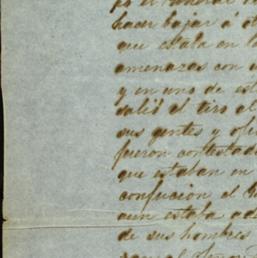 hacer bajar á
que estaba en l
amenazas con
y en uno de est
salió el tiro al
sus gentes y ofi
fueron contestad
que estaban en
confucion el
aun estaba ade
de sus hombres